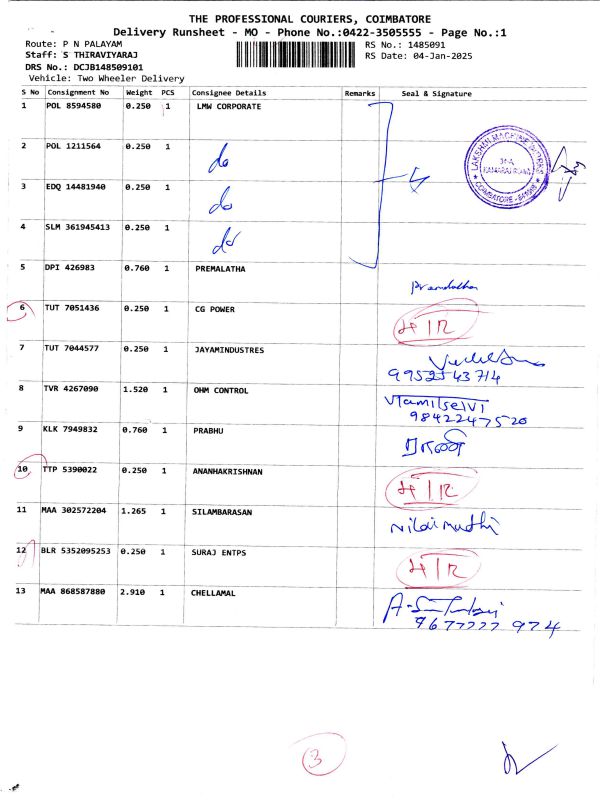 THE PROFESSIONAL COURIERS, COIMBATORE
Delivery Runsheet - MO - Phone No.:0422-3505555 - Page No.:1
Route: P N PALAYAM RS No.: 1485091
Staff: S THIRAVIYARAJ RS Date: 04-Jan-2025
DRS No.: DCJB148509101
Vehicle: Two Wheeler Delivery
S No Consignment No Weight PCS Consignee Details Remarks Seal & Signature
1 POL 8594580 0.250 1 LMW CORPORATE
2 POL 1211564 0.250 1 do
3 EDQ 14481940 0.250 1 do
4 SLM 361945413 0.250 1 do
LAKSHMI MACHINE WORKS
34-A
KAMARAJ ROAD
COIMBATORE
5 DPI 426983 0.760 1 PREMALATHA Premalatha
6 TUT 7051436 0.250 1 CG POWER
7 TUT 7044577 0.250 1 JAYAMINDUSTRES
9952543714
8 TVR 4267090 1.520 1 OHM CONTROL Vtamilselvi
9842247520
9 KLK 7949832 0.760 1 PRABHU
10 TTP 5390022 0.250 1 ANANHAKRISHNAN
11 MAA 302572204 1.265 1 SILAMBARASAN
12 BLR 5352095253 0.250 1 SURAJ ENTPS
13 MAA 868587880 2.910 1 CHELLAMAL
9677777 974
3